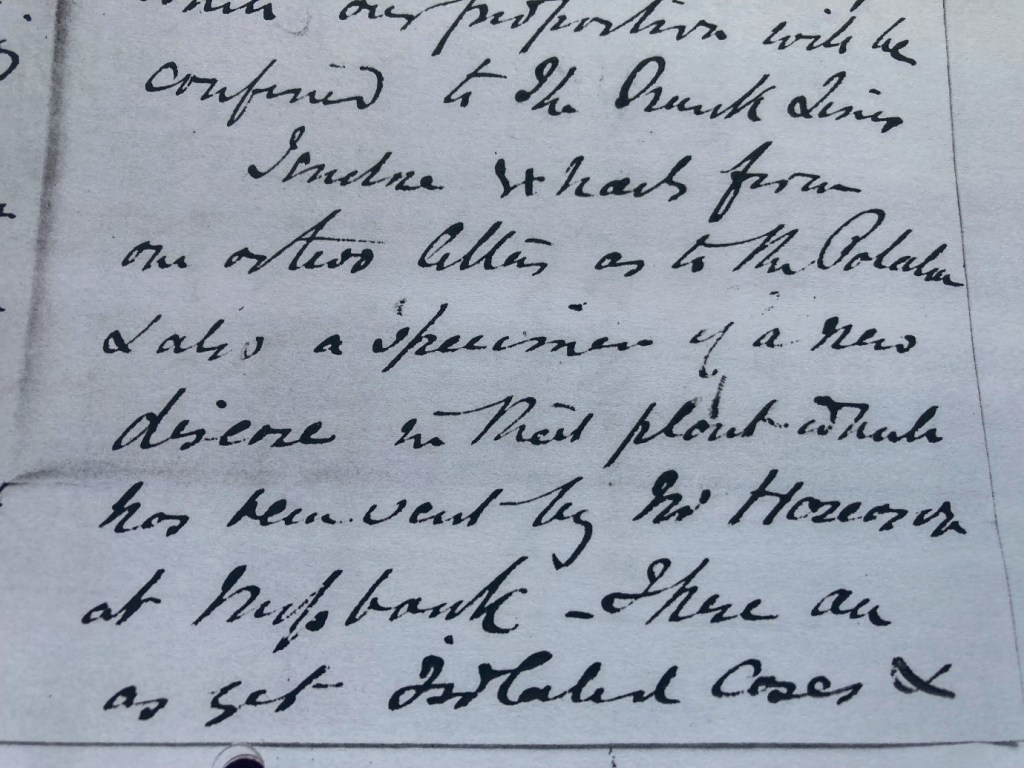 our proportion will be
confined to the Trunk Lines
I enclose extracts from
one or two letters as to the Potatoe
& also a specimen of a new
disease in that plant which
has been sent by Mr
at bank - These are
as yet Isolated Cases &